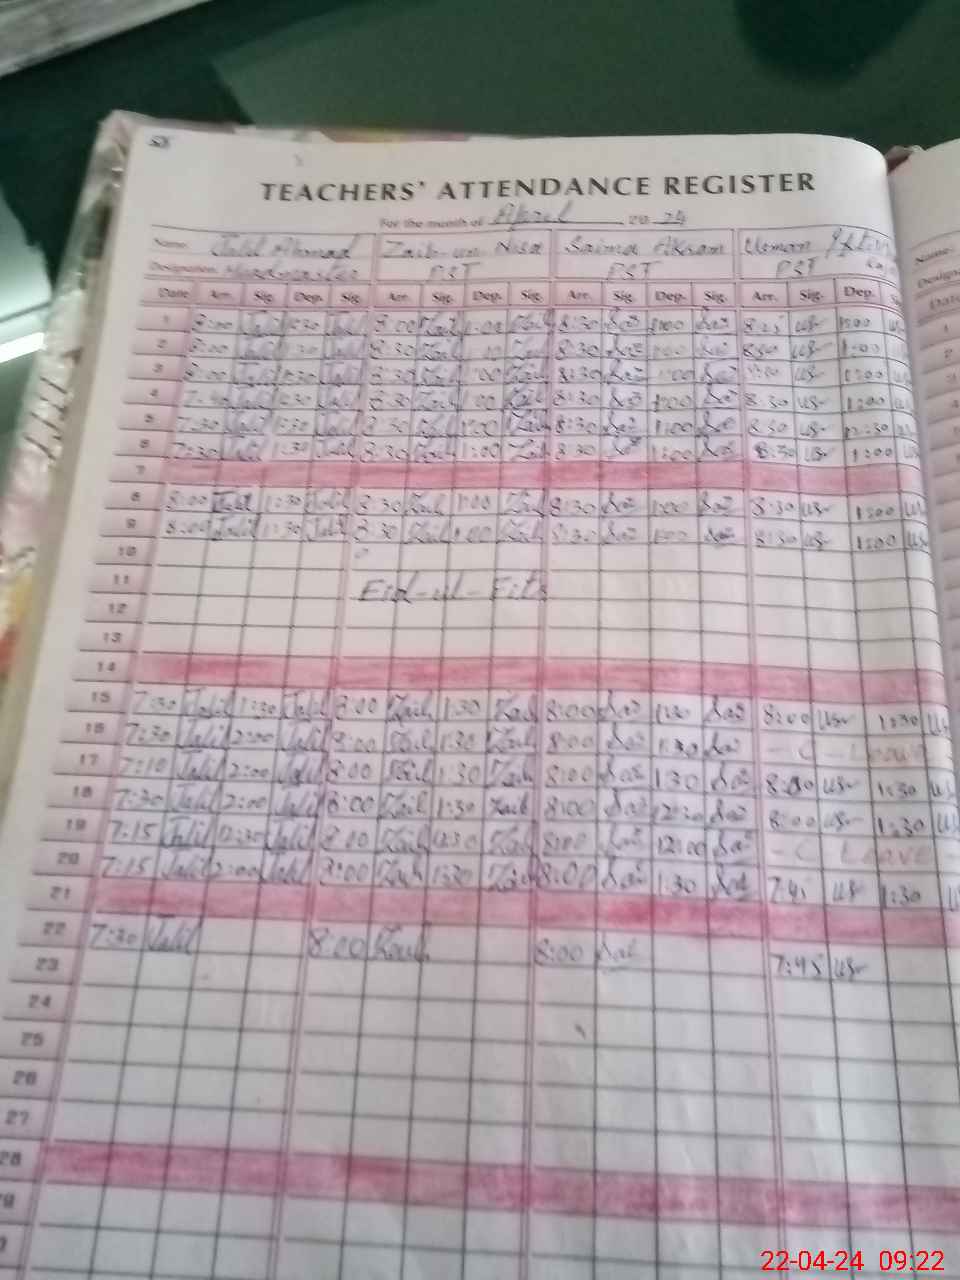 58
TEACHERS' ATTENDANCE REGISTER
For the month of April 20 24
Name: Jalil Ahmad Zaib-un-Nisa Saima Akram Usman
Designation: Headmaster PST PST PST
Date Arr. Sig. Dep. Sig. Arr. Sig. Dep. Sig. Arr. Sig. Dep. Sig. Arr. Sig. Dep.
1 8:00 Jalil 1:30 Jalil 8:00 Zaib 1:00 Zaib 8:30 Sai 1:00 Sai 8:25 us 1:00 us
2 8:00 Jalil 1:30 Jalil 8:30 Zaib 1:00 Zaib 8:30 Sai 1:00 Sai 8:30 us 1:00 us
3 8:00 Jalil 1:30 Jalil 8:30 Zaib 1:00 Zaib 8:30 Sai 1:00 Sai us 1:00 us
4 Jalil 1:30 Jalil 8:30 Zaib 1:00 Zaib 8:30 Sai 1:00 Sai 8:30 us 1:00 us
5 7:30 Jalil 1:30 Jalil 8:30 Zaib 1:00 Zaib 8:30 Sai 1:00 Sai 8:30 us 12:30 us
6 7:30 Jalil 1:30 Jalil 8:30 Zaib 1:00 Zaib 8:30 Sai 1:00 Sai 8:30 us 1:00 us
7
8 8:00 Jalil 1:30 Jalil 8:30 Zaib 1:00 Zaib 8:30 Sai 1:00 Sai 8:30 us 1:00 us
9 8:00 Jalil 1:30 Jalil 8:30 Zaib 1:00 Zaib 8:30 Sai 1:00 Sai 8:30 us 1:00 us
10
11 Eid-ul-Fitr
12
13
14
15 7:30 Jalil 1:30 Jalil 8:00 Zaib 1:30 Zaib 8:00 Sai 1:30 Sai 8:00 us 1:30 us
16 7:30 Jalil 2:00 Jalil 8:00 Zaib 1:30 Zaib 8:00 Sai 1:30 Sai - C - Leave
17 7:10 Jalil 2:00 Jalil 8:00 Zaib 1:30 Zaib 8:00 Sai 1:30 Sai 8:00 us 1:30 us
18 7:30 Jalil 2:00 Jalil 8:00 Zaib 1:30 Zaib 8:00 Sai 12:30 Sai 8:00 us 1:30 us
19 7:15 Jalil 12:30 Jalil 8:00 Zaib 12:30 Zaib 8:00 Sai 12:00 Sai - C Leave -
20 7:15 Jalil 2:00 Jalil 8:00 Zaib 1:30 Zaib 8:00 Sai 1:30 Sai 7:45 us 1:30 us
21
22 7:30 Jalil 8:00 Zaib 8:00 Sai 7:45 us
23
24
25
26
27
28
22-04-24 09:22